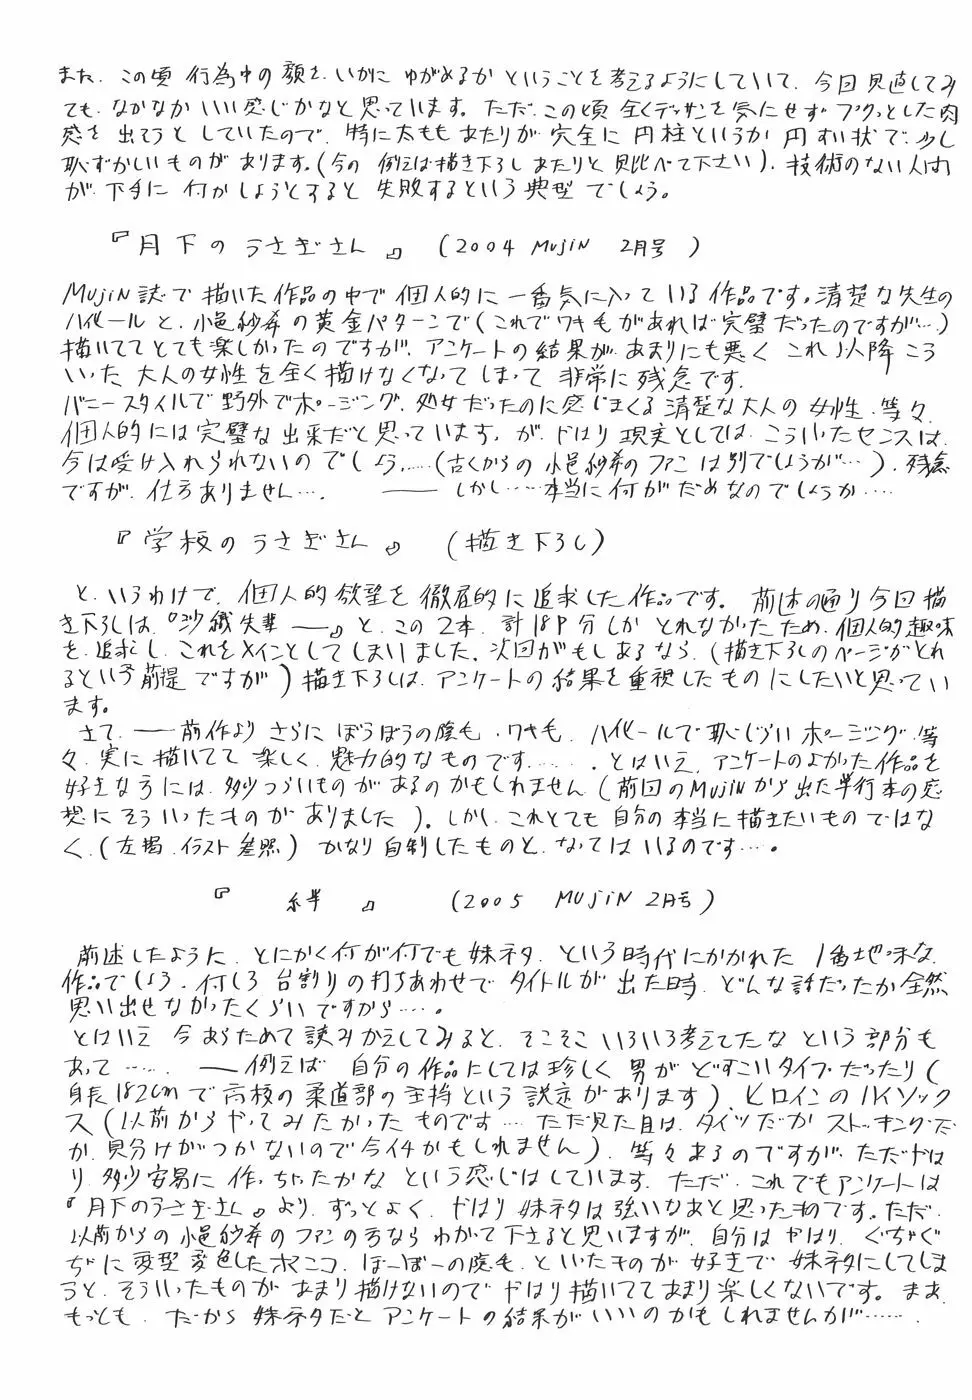 また、この頃 行為中の顔を、いかに ゆがめるか ということを考えるようにしていて、今回見直してみ
ても、なかなか いい感じかなと 思っています。ただ、この頃 全くデッサンを気にせず プクッとした肉
感を 出そうと していたので、特に太もも あたりが 完全に 円柱というか 円すい状で、少し
恥ずかしいものが あります。(今の 例えば描き下ろし あたりと、見比べて下さい)、技術のない人間
が 下手に 何かしようとすると 失敗するという 典型 でしょう。
『月下のうさぎさん』 (2004 MUJIN 2月号)
MUJIN誌で 描いた作品の中で 個人的に 一番気に入って いる作品です。清楚な先生の
ハイヒールと、小邑紗希の黄金パターンで(これでワキ毛があれば 完璧だったのですが…)
描いてて とても楽しかったのですが、アンケートの結果が、あまりにも悪く これ以降 こう
いった 大人の女性を 全く描けなくなって しまって 非常に残念です。
バニースタイルで 野外でポージング、処女だったのに感じまくる 清楚な大人の 女性、等々、
個人的には完璧な出来だと思っています。が、やはり 現実としては、こういったセンスは、
今は受け入れられないのでしょう……(古くからの 小邑紗希のファン は別でしょうが…)、残念
ですが、仕方ありません…。 ―― しかし……本当に何がだめなのでしょうか……
『学校のうさぎさん』 (描き下ろし)
と、いうわけで、個人的欲望を 徹底的に 追求した作品です。前述の通り今回描
き下ろしは、『沙織先輩 ――』と、この2本、計18P分しか とれなかったため、個人的趣味
を、追求し、これをメインとしてしまいました。次回がもしあるなら、(描き下ろしのページがとれ
るという前提 ですが)描き下ろしは、アンケートの結果を重視したもの にしたいと思ってい
ます。
さて、―― 前作より さらに ぼうぼうの陰毛、ワキ毛、ハイヒールで恥じらい ポージング、等
々、実に 描いてて 楽しく、魅力的なものです……。とはいえ、アンケートのよかった作品を
好きな方には、多少つらいものが あるのかもしれません(前回のMUJINから出た単行本の感
想に そういったものが ありました)。しかし、これとても 自分の本当に描きたいもの ではな
く、(左掲 イラスト参照) かなり自制したものと、なってはいるのです…。
『 絆 』 (2005 MUJIN 2月号)
前述したように、とにかく何が何でも妹ネタ、という時代にかかれた 1番地味な
作品でしょう。何しろ 台割りの打ちあわせで タイトルが 出た時、どんな話だったか全然
思い出せなかったくらいですから…。
とはいえ 今あらためて 読みかえしてみると、そこそこ いろいろ考えてたな という部分も
あって……、―― 例えば 自分の作品にしては珍しく 男が どすこいタイプだったり(
身長182cmで高校の柔道部の主将という 設定があります)、ヒロインのハイソック
ス(以前からやってみたかったものです… ただ見た目は、タイツだか ストッキングだ
か、見分けがつかないので今イチかもしれません)、等々あるのですが、ただやは
り、多少安易に 作っちゃったかな という感じはしています。ただ、これでもアンケートは
『月下のうさぎさん』より、ずっとよく、やはり妹ネタは強いなあと思ったものです。ただ、
以前からの小邑紗希のファンの方なら わかって下さると思いますが、自分は やはり、ぐちゃぐ
ぢゃに 変型 変色した、ぼーぼーの陰毛、といったものが 好きで 妹ネタにしてしま
うと、そういったものが あまり描けないので やはり描いててあまり楽しくないです。まあ、
もっとも、だから 妹ネタだと アンケートの結果がいいのかもしれませんが……。